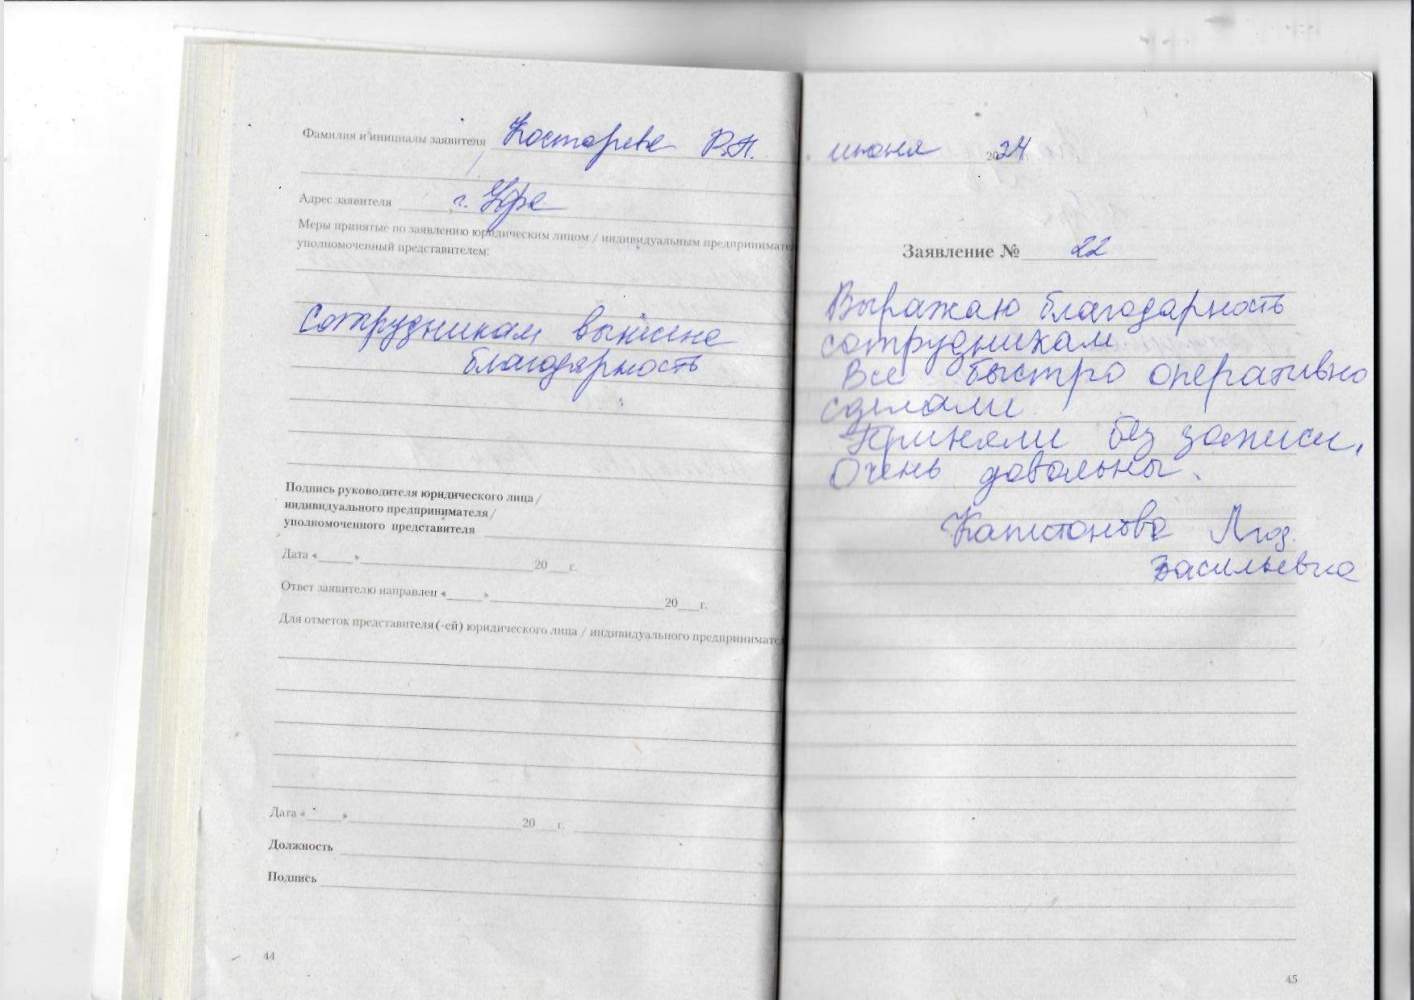 Фамилия и инициалы заявителя Костарева Р.Н.
Адрес заявителя г. Уфа
Меры принятые по заявлению юридическим лицом / индивидуальным предпринимате
уполномоченный представителем:
Сотрудникам вынесена
благодарность
Подпись руководителя юридического лица /
индивидуального предпринимателя /
уполномоченного представителя
Дата «» 20 г.
Ответ заявителю направлен «» 20 г.
Для отметок представителя (-ей) юридического лица / индивидуального предпринимате
Дата «» 20 г.
Должность
Подпись
44
июня 2024
Заявление № 22
Выражаю благодарность
сотрудникам
Все быстро оперативно
сделали
Приняли без записи,
Очень довольны.
Капитонова Люд.
Васильевна
45